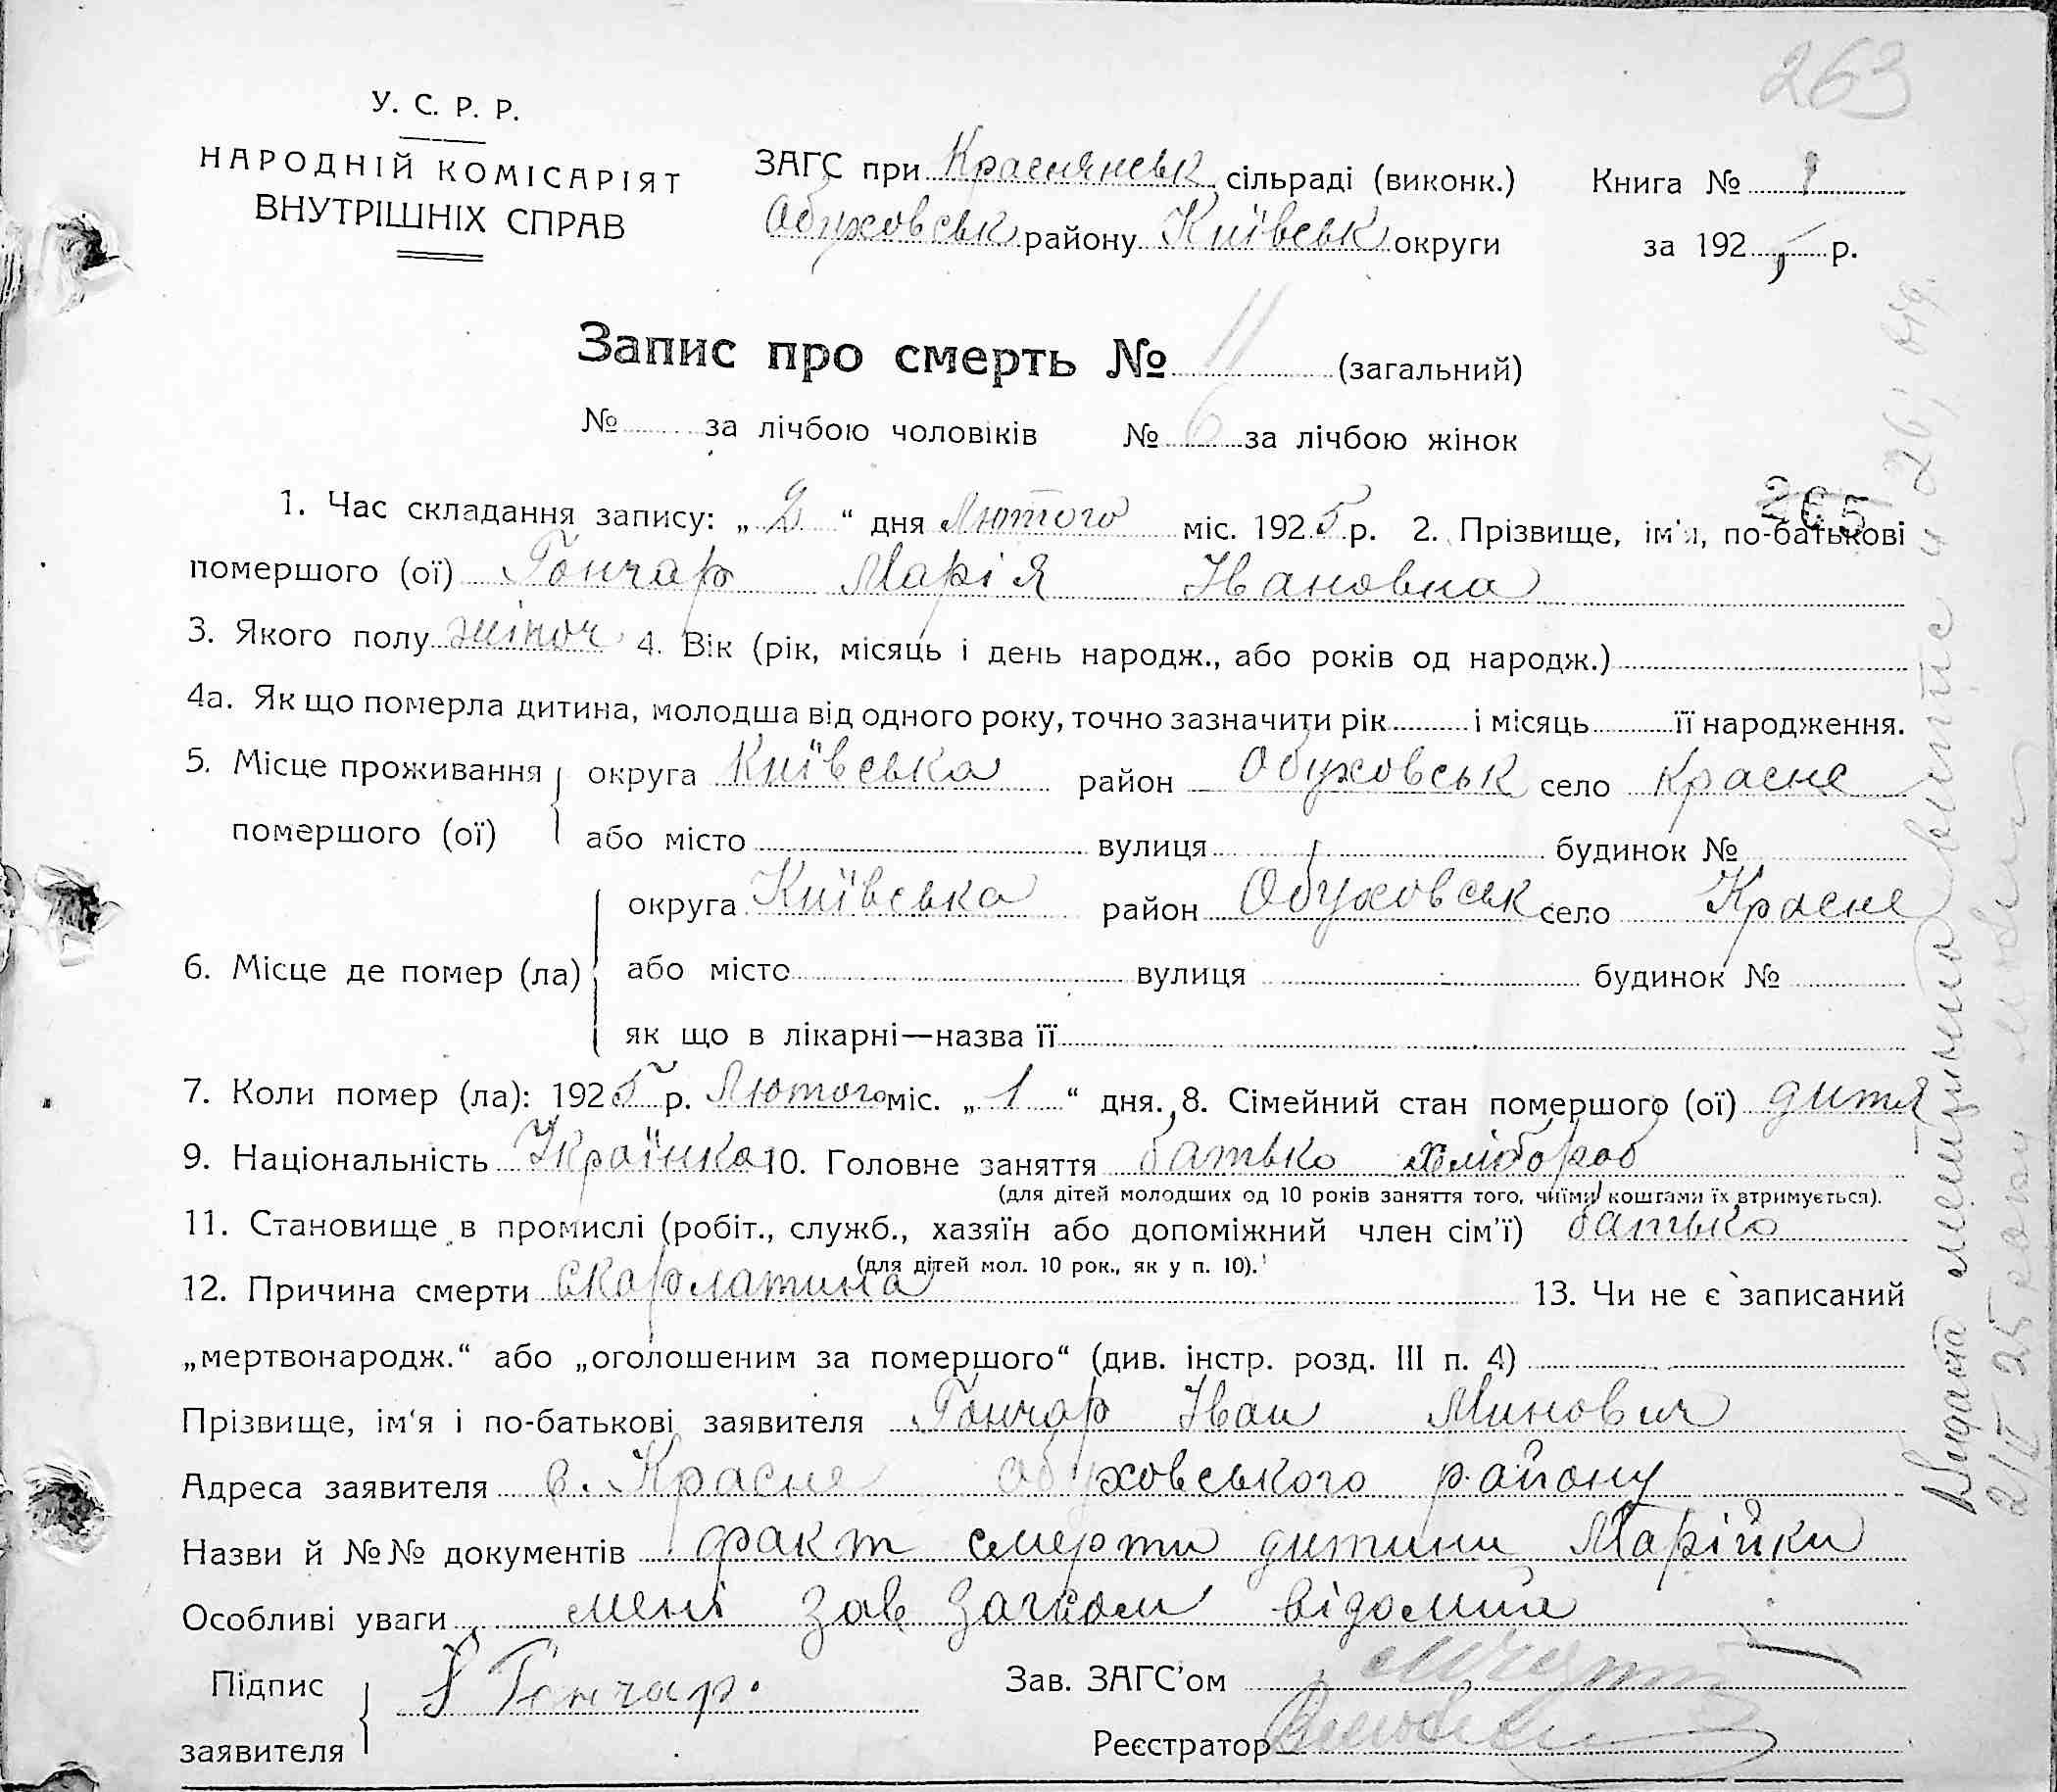 263
У. С. Р. Р.
НАРОДНІЙ КОМІСАРІЯТ
ВНУТРІШНІХ СПРАВ
ЗАГС при Краснянськ сільраді (виконк.)
Обуховськ району Київськ округи
Книга № 1
за 1925 р.
Запис про смерть № 11 (загальний)
№ за лічбою чоловіків № 6 за лічбою жінок
265
1. Час складання запису: „2“ дня Лютого міс. 1925 р. 2. Прізвище, ім'я, по-батькові
помершого (ої) Гончар Марія Ивановна
3. Якого полу жіноч 4. Вік (рік, місяць і день народж., або років од народж.)
4а. Як що померла дитина, молодша від одного року, точно зазначити рік і місяць її народження.
5. Місце проживання округа Київська район Обуховськ село Красне
помершого (ої) або місто вулиця будинок №
округа Київська район Обуховськ село Красне
6. Місце де помер (ла) або місто вулиця будинок №
як що в лікарні—назва її
7. Коли помер (ла): 1925 р. Лютого міс. „1“ дня. 8. Сімейний стан помершого (ої) дитя
9. Національність Українка 10. Головне заняття батько хлібороб
(для дітей молодших од 10 років заняття того, чиїми коштами їх втримується).
11. Становище в промислі (робіт., служб., хазяїн або допоміжний член сім'ї) батько
(для дітей мол. 10 рок., як у п. 10).
12. Причина смерти Скарлатина 13. Чи не є записаний
„мертвонародж.“ або „оголошеним за помершого“ (див. інстр. розд. III п. 4)
Прізвище, ім'я і по-батькові заявителя Гончар Иван Минович
Адреса заявителя с. Красне обуховського району
Назви й №№ документів факт смерти дитини Марійки
Особливі уваги мені зав загсом відомий
Підпис
заявителя
Гончар.
Зав. ЗАГС'ом
Реєстратор
Видана
2/II 25 року